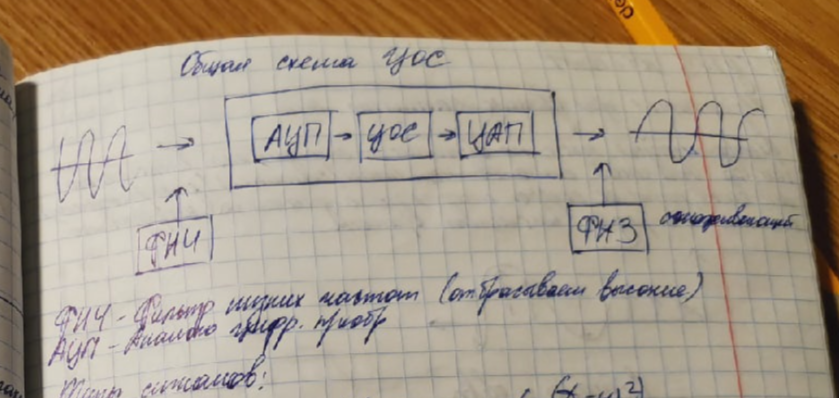 Общая схема ЦОС
АЦП ЦОС ЦАП
ФНЧ
ФНЗ сглаживающий
ФНЧ - Фильтр низких частот (отбрасываем высокие)
АЦП - Аналого цифр. приобр
Типы сигналов: